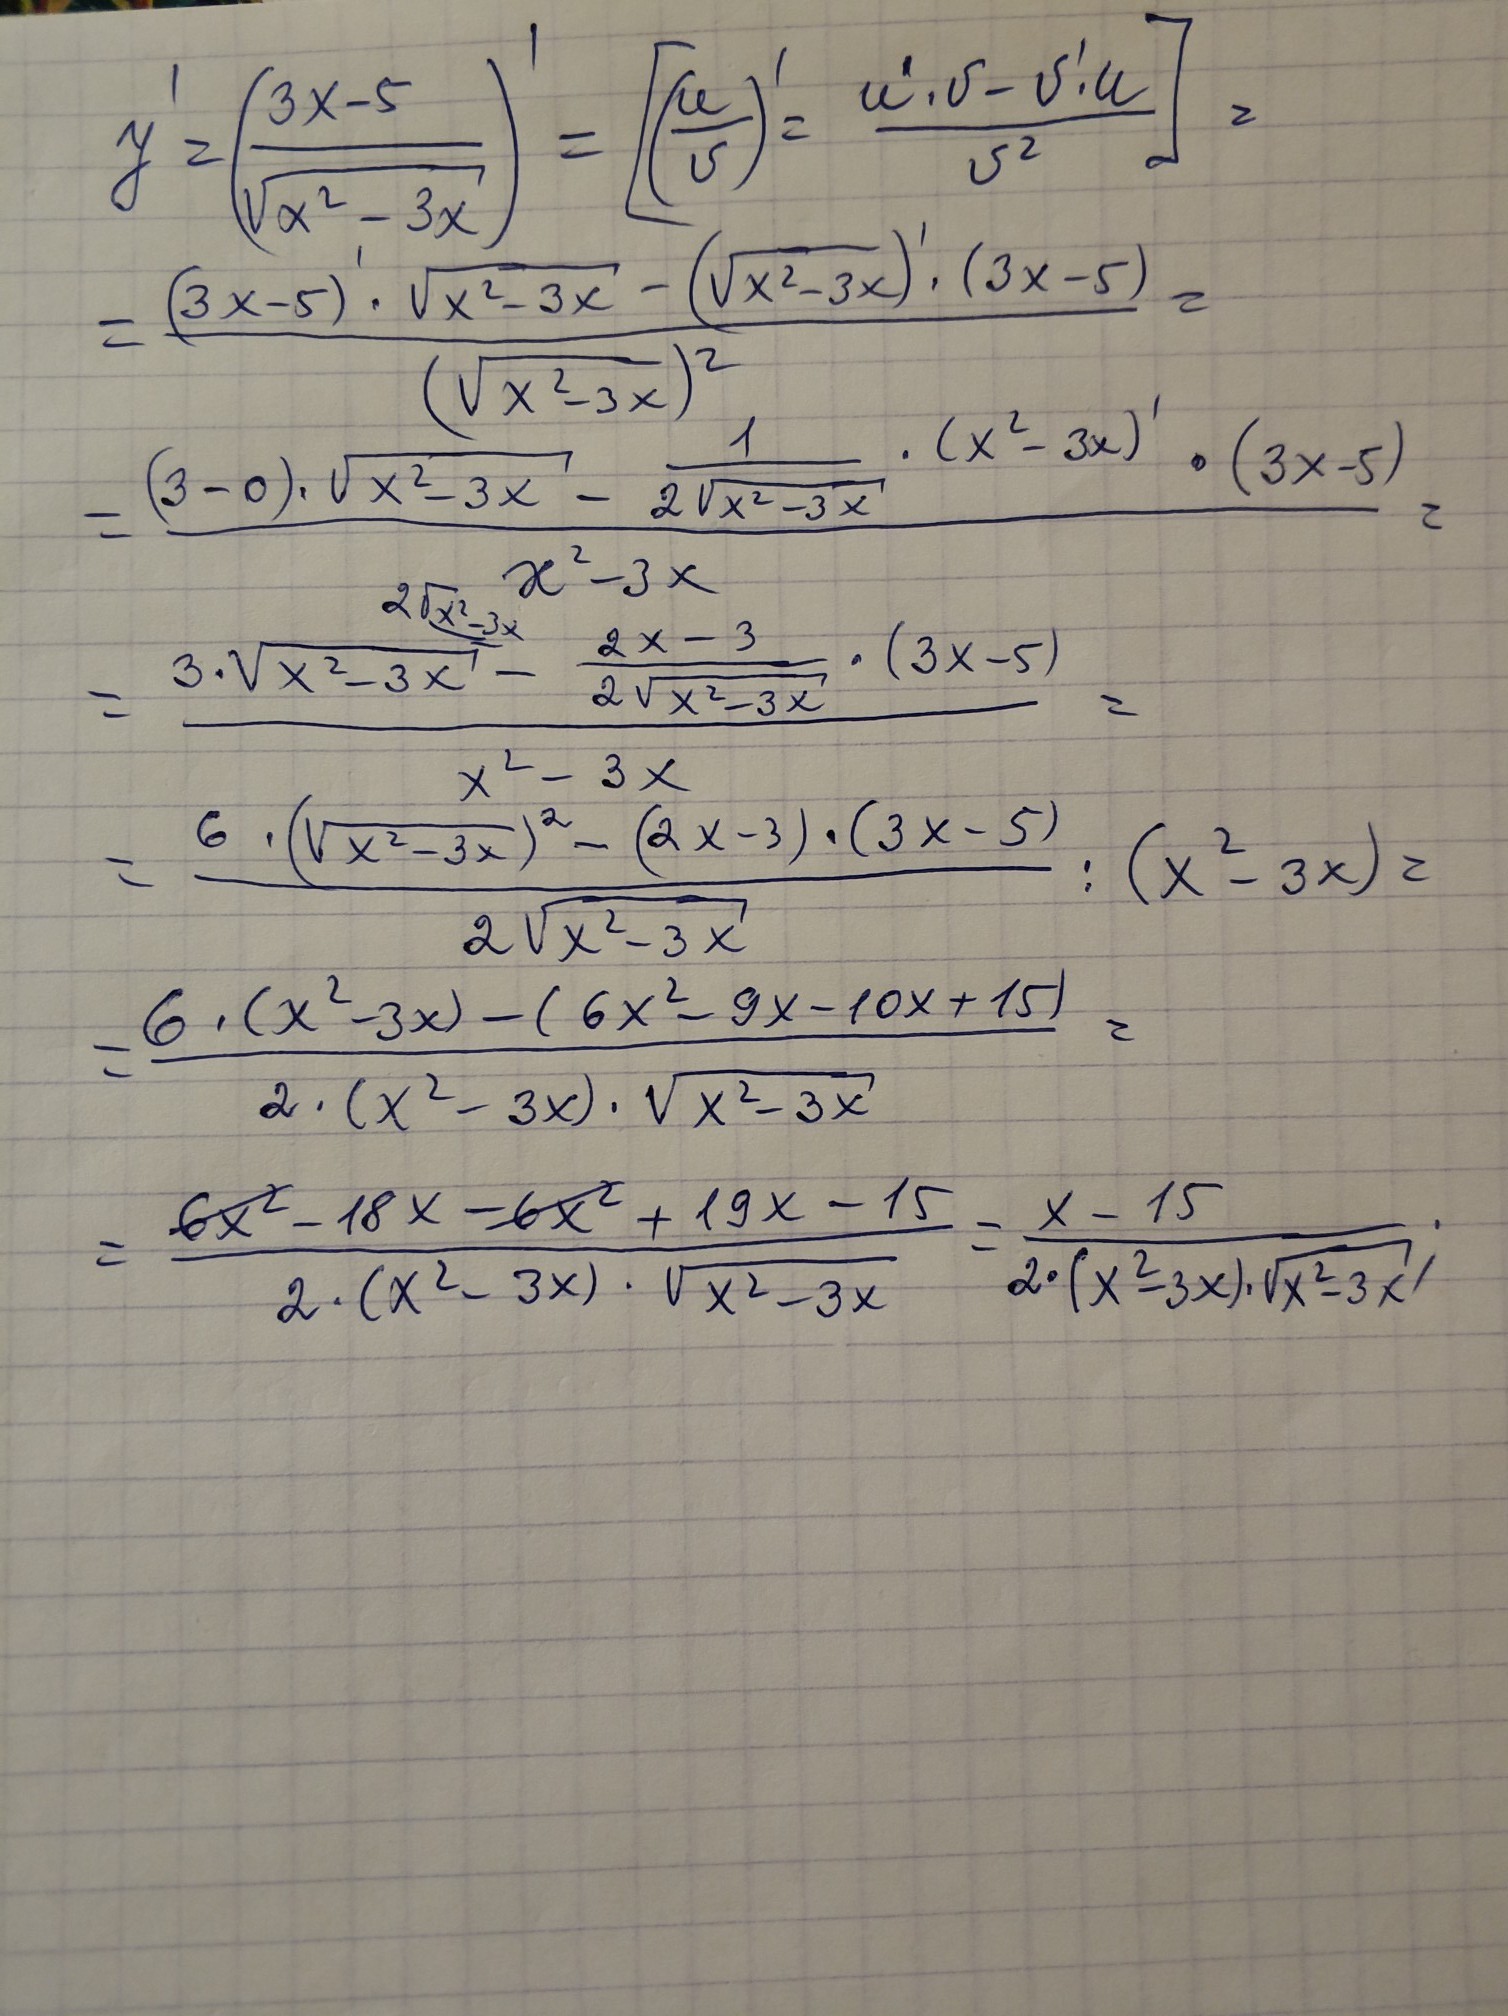 y' = ((3x-5)/(√(x²-3x)))' = [(u/v)' = (u'·v - v'·u)/(v²)] =
= ((3x-5)'·√(x²-3x) - (√(x²-3x))'·(3x-5))/((√(x²-3x))²) =
= ((3-0)·√(x²-3x) - 1/(2√(x²-3x))·(x²-3x)'·(3x-5))/(x²-3x) =
2√(x²-3x)
= (3·√(x²-3x) - (2x-3)/(2√(x²-3x))·(3x-5))/(x²-3x) =
= (6·(√(x²-3x))² - (2x-3)·(3x-5))/(2√(x²-3x)) : (x²-3x) =
= (6·(x²-3x) - (6x²-9x-10x+15))/(2·(x²-3x)·√(x²-3x)) =
= (6x²-18x-6x²+19x-15)/(2·(x²-3x)·√(x²-3x)) = (x-15)/(2·(x²-3x)·√(x²-3x));